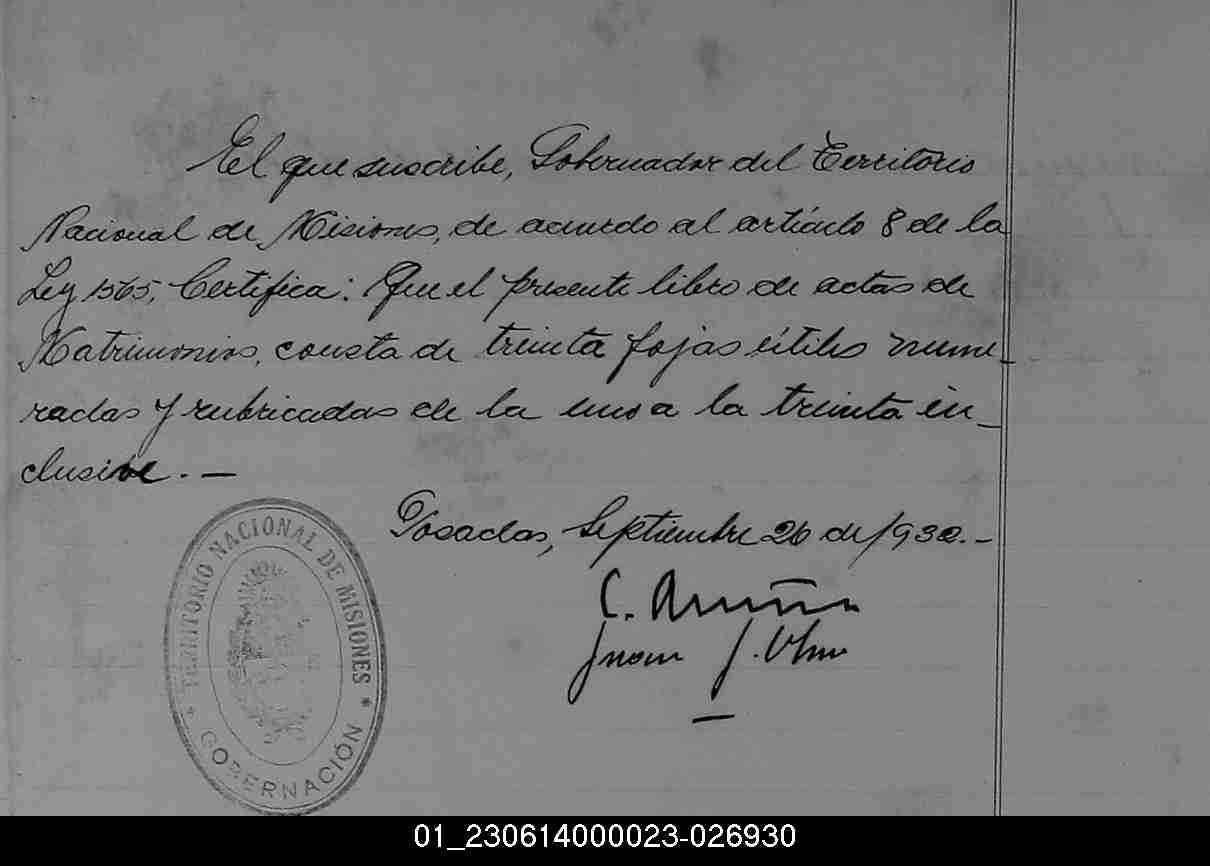 El que suscribe, Gobernador del Territorio
Nacional de Misiones, de acuerdo al artículo 8 de la
Ley 1565, Certifica: Que el presente libro de actas de
Matrimonios, consta de treinta fojas útiles nume-
radas y rubricadas de la uno a la treinta in-
clusive. —
Posadas, Septiembre 26 de 1930. -
C.
Juan J.
TERRITORIO NACIONAL DE MISIONES
* GOBERNACIÓN *
01_230614000023-026930